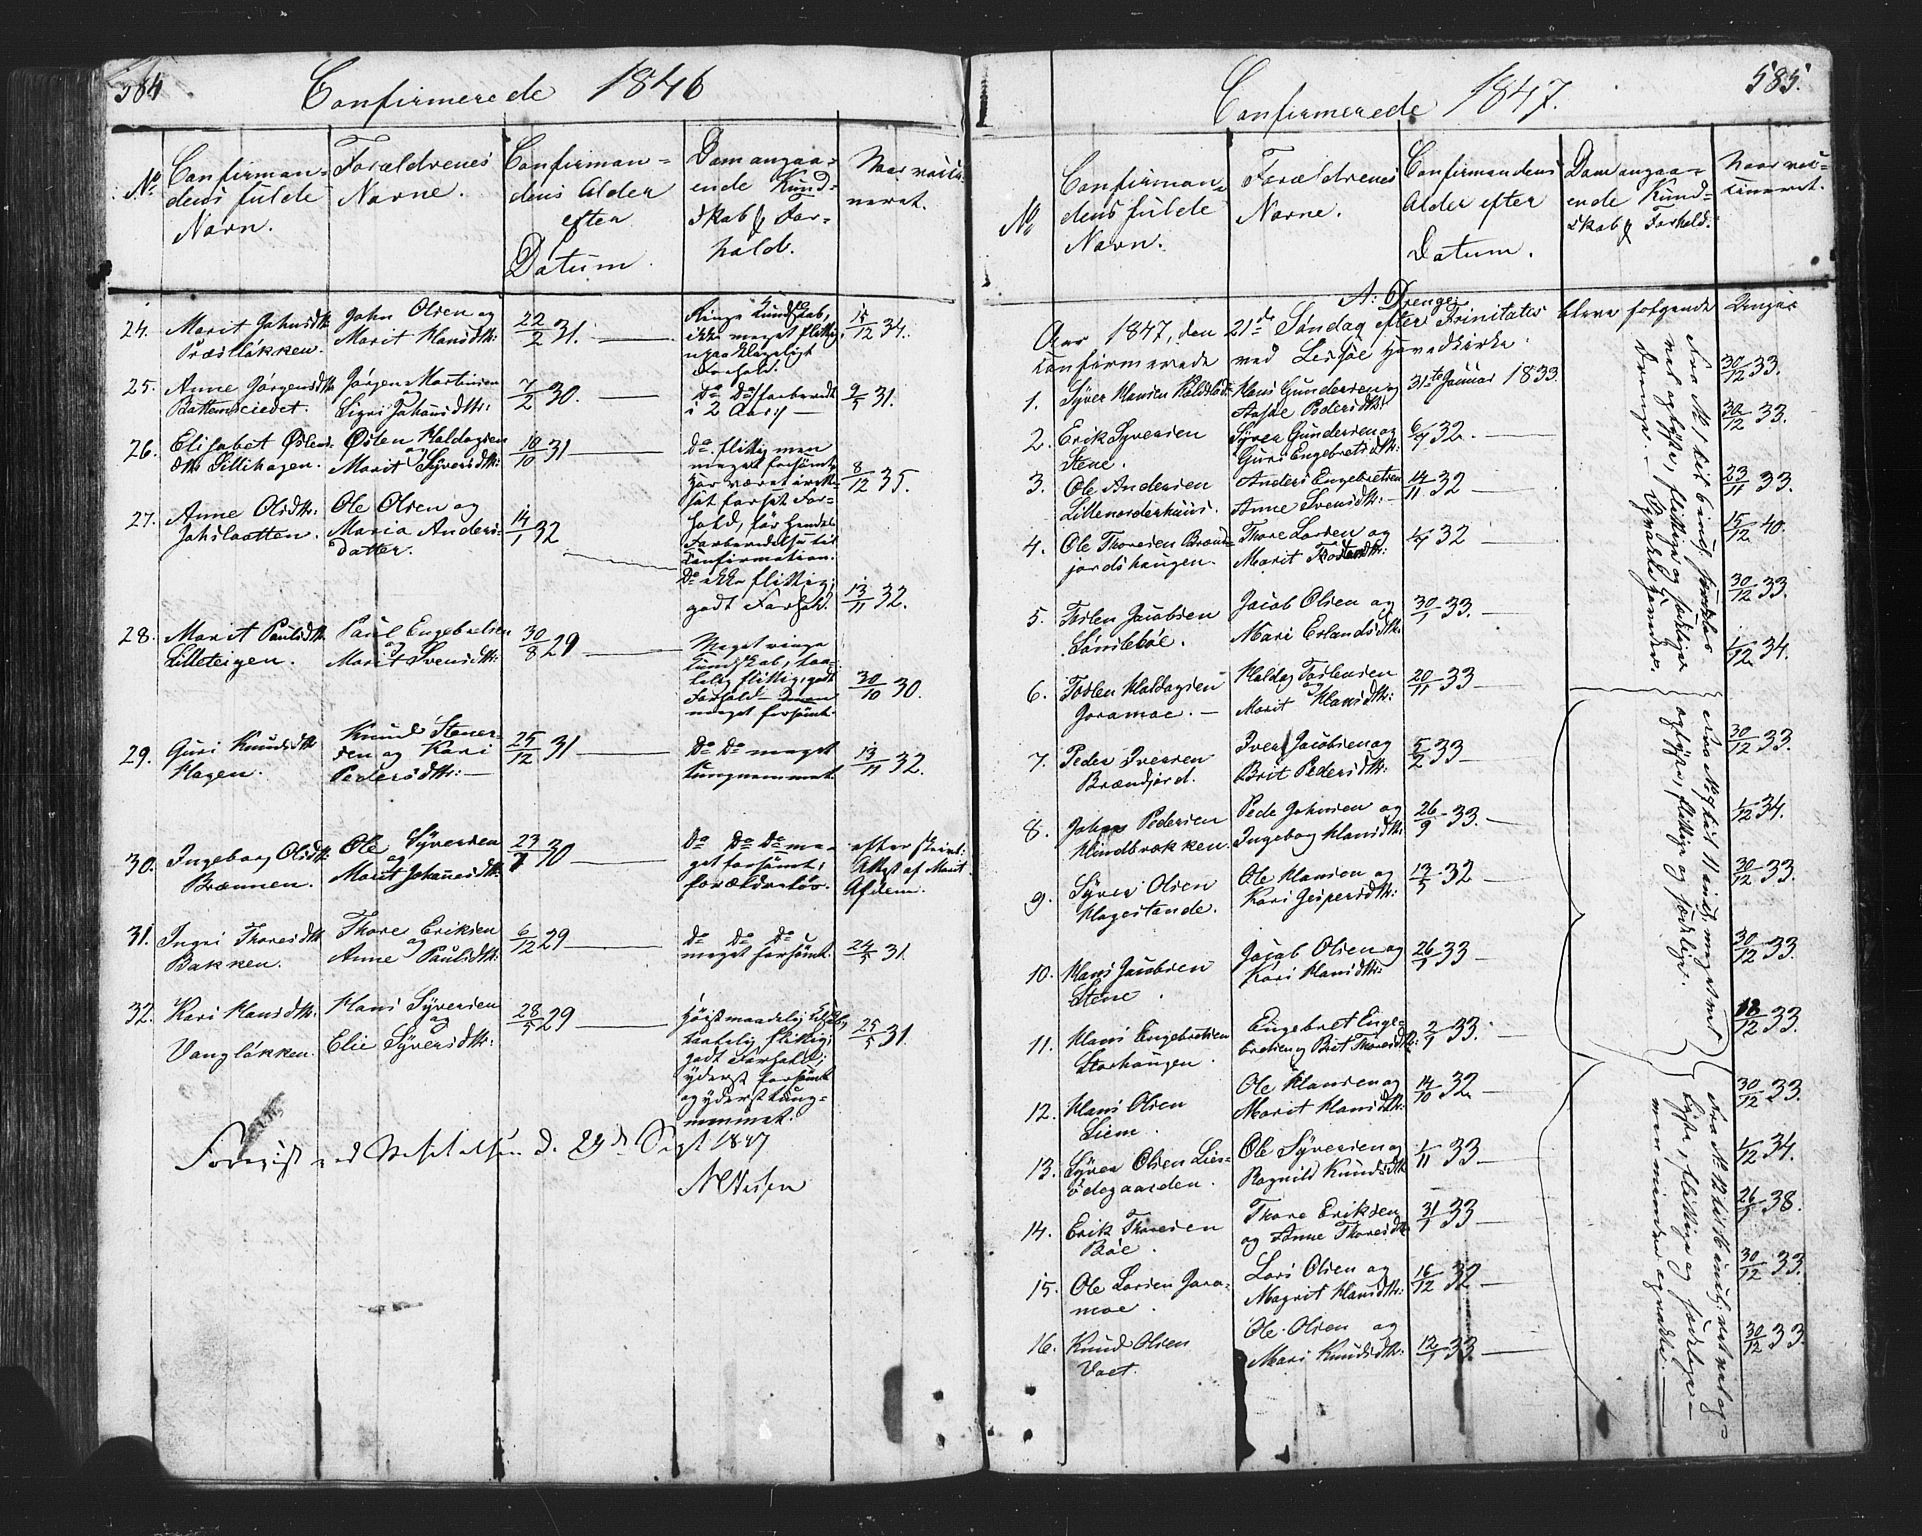 584
Confirmerede 1846
No
Confirman-
dens fulde
Navn.
Forældrenes
Navne.
Confirman-
dens Alder
efter
Datum.
Dom angaa-
ende Kund-
skab & For-
hold.
Naar vacci-
neret.
24. Marit Johnsdtr
Præstløkken.
John Olsen og
Marit Hansdtr:
22/2 31.
Ringe Kundskab,
ikke meget flittig
upaaklageligt
Forhold.
15/12 34.
25. Anne Jørgensdtr
Battenseiedet.
Jørgen Mortinsen
Sigri Johansdtr:
7/2 30.
Do Do forberedt
i 2 Aar;
9/5 31.
26. Elisabet Østens
dtr Lillihagen.
Østen Haldogsen
og
Marit Syversdtr:
10/10 31
Do. flittig men
meget forsømt
har været
sat for sit For-
hold, før hendes
Forberedelse til
Confirmation.
8/12 35.
27. Anne Olsdtr:
Johslaatten.
Ole Olsen og
Maria Anders-
datter.
14/1 32
Do ikke flittig;
godt Forhold.
13/11 32.
28. Marit Paulsdtr
Lilleteigen.
Paul Engebretsen
og
Marit Svensdtr:
30/8 29
Meget ringe
Kundskab, taa-
lelig flittig, godt
Forhold
meget forsømt.
30/10 30.
29. Guri Knudsdtr
Hagen.
Knud Stener-
sen og Kari
Pedersdtr:
25/12 31
Do Do meget
tungnemmet
13/11 32.
30. Ingeborg Olsdtr
Brænnen.
Ole Syversen
og
Marit Johansdtr:
23/7 30
Do Do Do me-
get forsømt;
forældreløs.
efter skrivt:
Attest af Marit
31. Ingri Thoresdtr
Bakken.
Thore Eriksen
og
Anne Paulsdtr:
6/12 29
Do Do Do
meget forsømt.
24/5 31.
32. Kari Hansdtr:
Vangløkken.
Hans Syversen
og
Elie Syversdtr:
28/5 29
Høist maadelig Kdskb,
taalelig flittig;
godt Forhold;
yderst forsømt
og yderst tung-
nemmet.
25/5 31.
Foreviist ved Visitatsen d. 29de Sept 1847
585.
Confirmerede 1847.
No
Confirman-
dens fulde
Navn.
Forældrenes
Navne.
Confirmandens
Alder efter
Datum.
Dom angaa-
ende Kund-
skab & Forhold.
Naar vac-
cineret.
A: Drenge
Aar 1847, den 21de Søndag efter Trinitatis bleve følgende Unge
confirmerede ved Lessøe Hovedkirke:
1. Syver Hansen Koldslod
Hans Gundersen og
Aase Pedersdtr:
31te Januar 1833.
30/12 33.
2. Erik Syversen
Stene.
Syver Gundersen og
Guri Engebretsdtr:
6/7 32.
30/12 33.
3. Ole Andersen
Lillenorderhuus.
Anders Engebretsen
Anne Svensdtr:
14/11 32
23/11 33.
4. Ole Thoresen Brænd-
jordshaugen.
Thore Larsen og
Marit
32
15/12 40.
5. Torsten Jacobsen
Sønstebøe.
Jacob Olsen og
Mari Erlandsdtr:
30/1 33.
30/12 33.
6. Tosten Haldogsen
Joramoe.
Haldog Tostensen
og
Marit Hansdtr:
20/11 33
1/12 34.
7. Peder Iversen
Brændjord.
Iver Jacobsen og
Brit Pedersdtr:
5/2 33
30/12 33.
8. Johan Pedersen
Hindbrækken.
Pede Johnsen og
Ingebog Hansdtr:
26/9 33.
1/12 34.
9. Syver Olsen
Hagestande.
Ole Hansen og
Kari Jespersdtr:
13/5 32
30/12 33.
10. Hans Jacobsen
Stene.
Jacob Olsen og
Kari Hansdtr:
26/7 33
30/12 33.
11. Hans Engebretsen
Storhaugen.
Engebret Enge-
bretsen og Brit Thoresdtr:
2/1 33.
12/12 33.
12. Hans Olsen
Liem.
Ole Hansen og
Marit Hansdtr:
14/10 32.
30/12 33.
13. Syver Olsen Lies-
ødegaarden.
Ole Syversen og
Ragnild Knudsdtr
1/11 33
1/12 34.
14. Erik Thoresen
Bøe.
Thore Eriksen
og Anne Thoresdtr
31/7 33
26/7 38.
15. Ole Larsen Jora-
moe.
Lars Olsen og
Magrit Hansdtr:
16/12 32
30/12 33.
16. Knud Olsen
Vaet.
Ole Olsen og
Mari Knudsdtr:
12/7 33
30/12 33
Fra No 1 til 6 incl:
vel oplyste, flittige og sædelige
Drenge. –
Fra No 7 til 11 incl: meget vel
oplyste, flittige og sædelige.
Fra No 12 til 16 incl: ret vel op-
lyste, flittige og sædelige –
men mindre